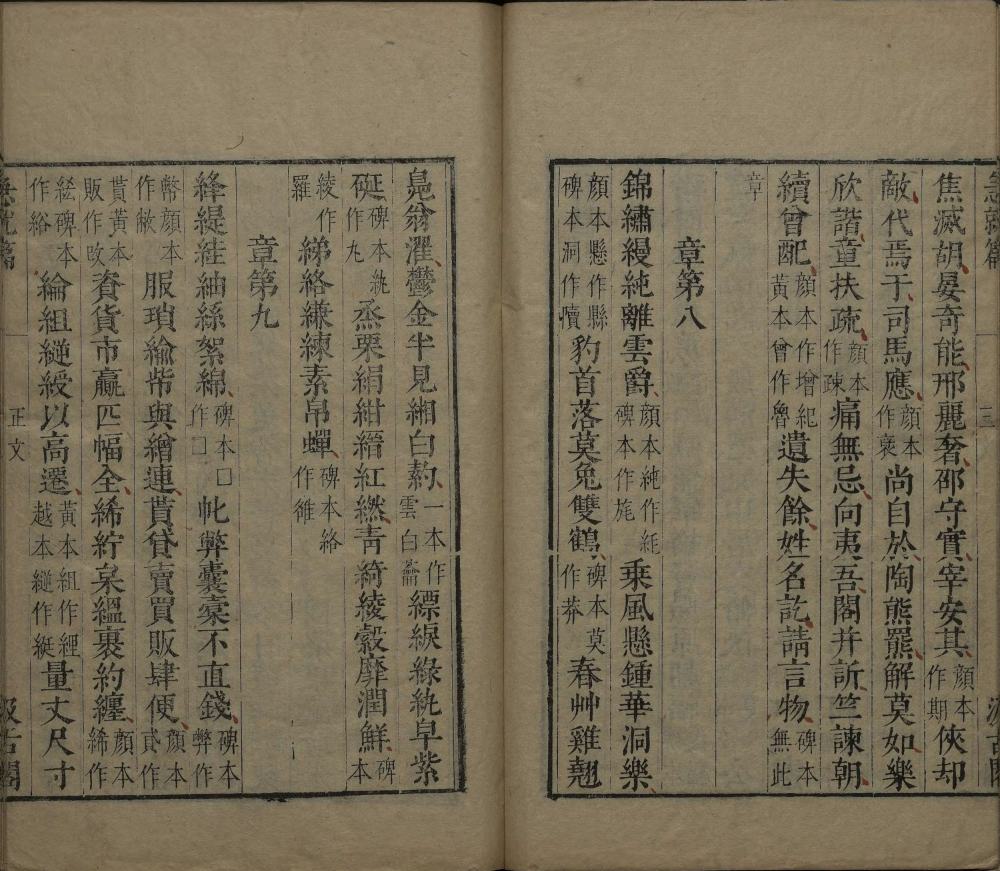 急就篇 三 汲古閣
焦滅胡晏奇能邢麗奢邵守實宰安其顏本作期俠却
敵代焉于司馬應顏本作褒尚自於陶熊羆解莫如樂
欣諧童扶疏顏本作疎痛無忌向夷吾閣并訢竺諫朝
續曾配顏本作增紀黃本曾作魯遺失餘姓名訖請言物碑本無此
章
章第八
錦繡縵純離雲爵顏本純作䋎碑本作旄乗風懸鍾華洞樂
顏本懸作縣碑本洞作犢豹首落莫兔雙鶴碑本莫作莽春艸雞翹
鳧翁濯鬱金半見緗白䓮一本作雲白縹綟綠紈皁紫
硟碑本紈作丸烝栗絹紺縉紅繎青綺綾縠靡潤鮮碑本
綾作羅綈絡縑練素帛蟬碑本絡作雒
章第九
絳緹絓紬絲絮綿碑本□作□㠲弊囊橐不直錢碑本弊作
幣顏本作敝服瑣緰㠿與繒連貰貸賣買販肆便顏本貣作
貰黃本販作改資貨市贏匹幅全絺紵枲縕裹約纏顏本絺作
絟碑本作綌綸組縌綬以高遷黃本組作經越本縌作綎量丈尺寸
急就篇 正文 汲古閣